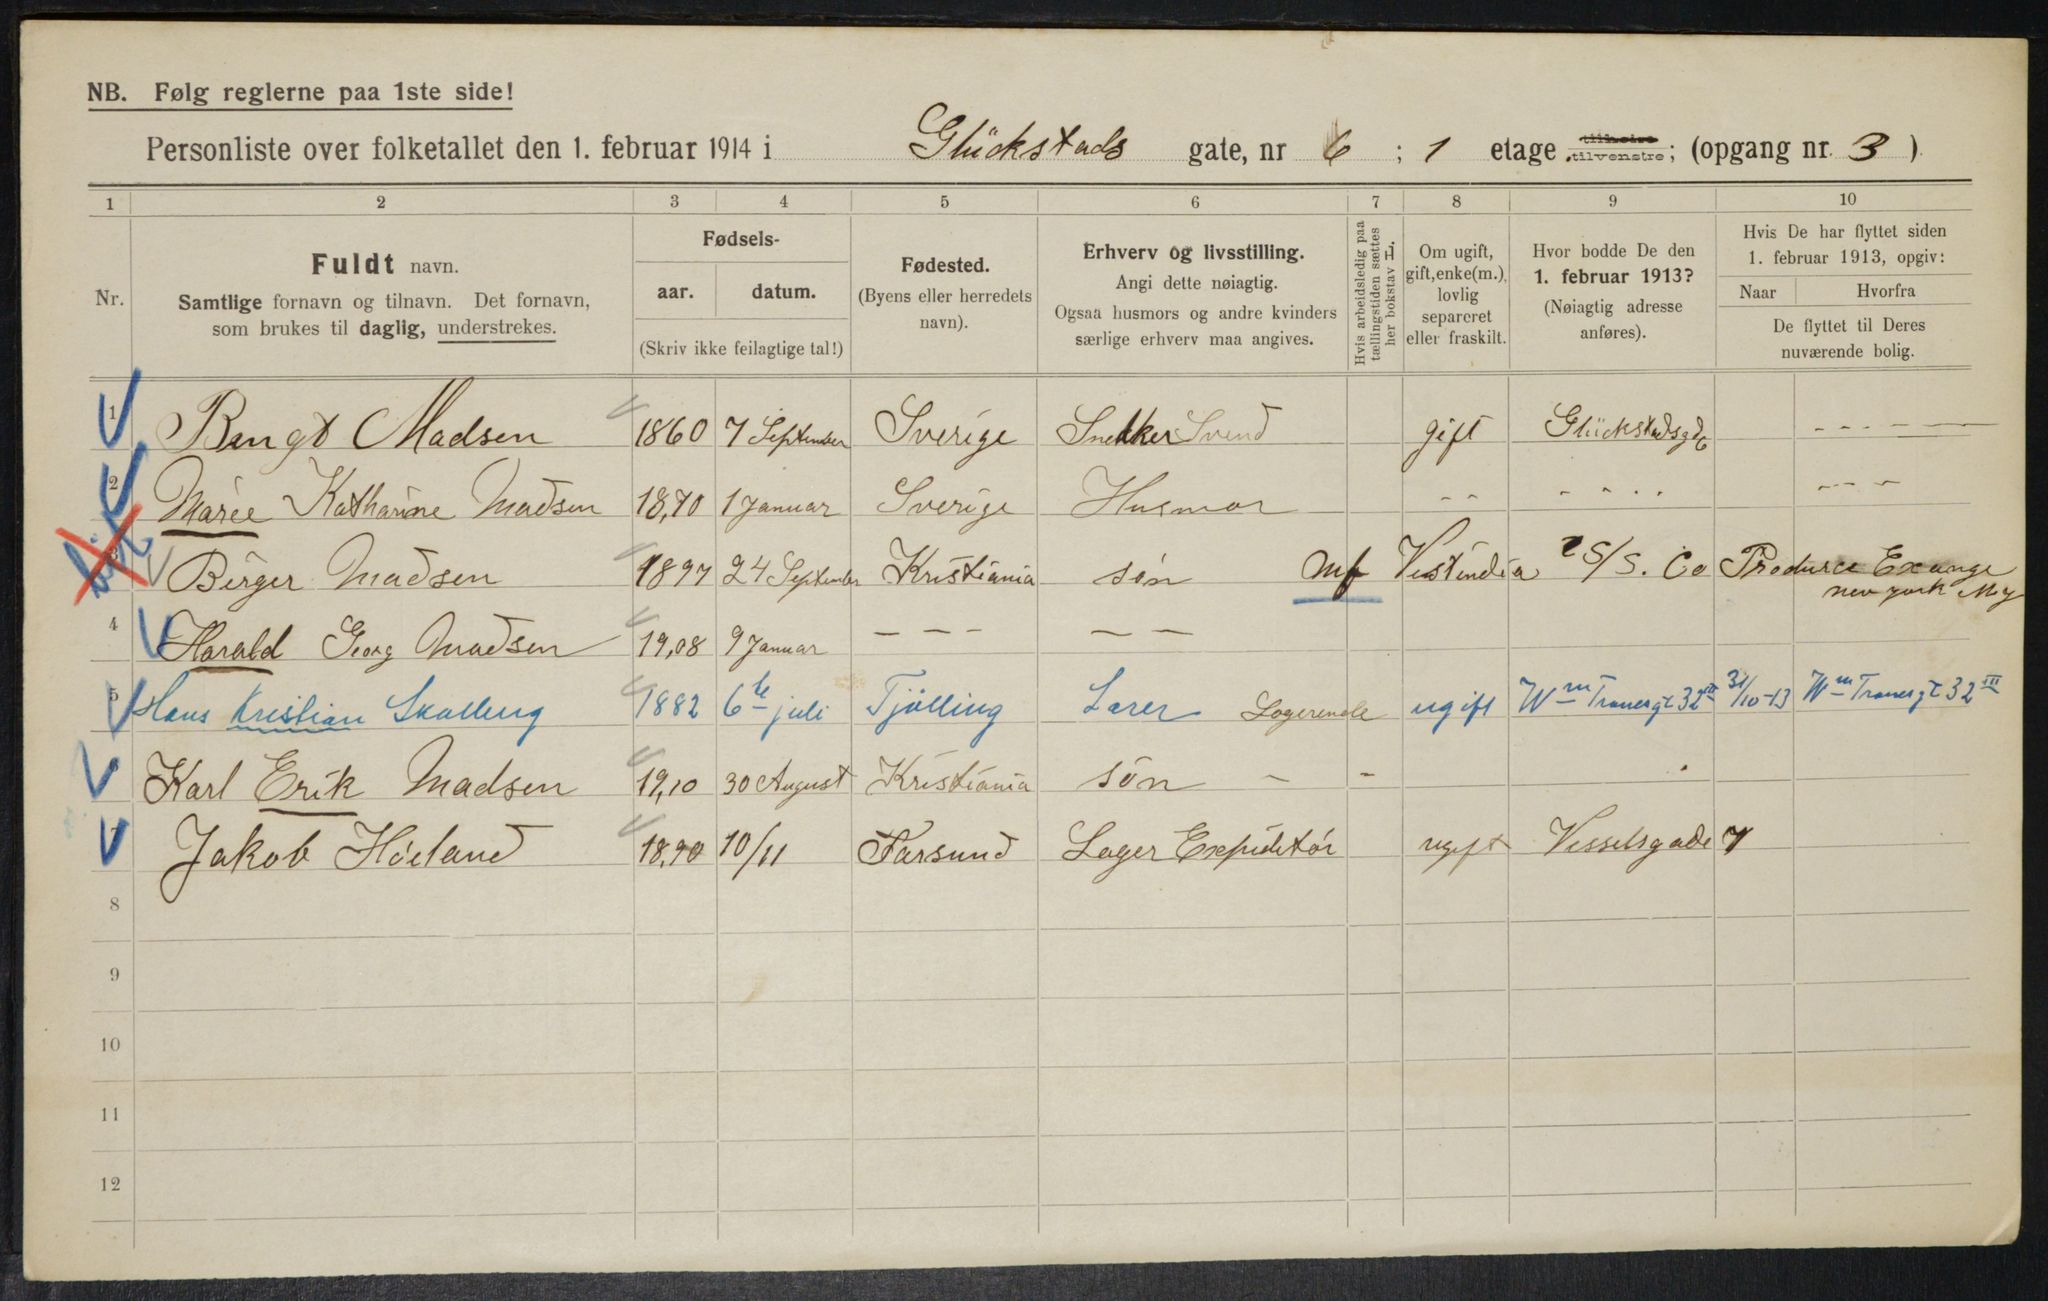 NB. Følg reglerne paa 1ste side!
Personliste over folketallet den 1. februar 1914 i Glückstads gate, nr 6 ; 1 etage tilhøire tilvenstre; (opgang nr. 3 )
1 2 3 4 5 6 7 8 9 10
Nr.
Fuldt navn.
Samtlige fornavn og tilnavn. Det fornavn,
som brukes til daglig, understrekes.
Fødsels-
aar. datum.
(Skriv ikke feilagtige tal!)
Fødested.
(Byens eller herredets
navn).
Erhverv og livsstilling.
Angi dette nøiagtig.
Ogsaa husmors og andre kvinders
særlige erhverv maa angives.
Hvis arbeidsledig paa
tællingstiden sættes
her bokstav L.
Om ugift,
gift, enke(m.),
lovlig
separeret
eller fraskilt.
Hvor bodde De den
1. februar 1913?
(Nøiagtig adresse
anføres).
Hvis De har flyttet siden
1. februar 1913, opgiv:
Naar Hvorfra
De flyttet til Deres
nuværende bolig.
1 Bengt Madsen 1860 7 September Sverige Snekker Svend gift Glückstadsgd 6 - - - - -
2 Marie Katharine Madsen 1870 1 Januar Sverige Husmor - - - - - - - - -
3 Birger Madsen 1897 24 September Kristiania sön Mf Vestindia S/S. Co Produce Exange
New York
4 Harald Georg Madsen 19,08 9 Januar - - - - -
5 Hans Kristian Skalleng 1882 6te juli Tjölling Lærer Logerende ugift Wm Tranesgt 32 III 31/10-13 Wm Tranesgt 32 III
6 Karl Erik Madsen 19,10 30 August Kristiania sön - -
7 Jakob Höiland 18,90 10/11 Farsund Lager Expiditör ugift Vesselsgade 7
8
9
10
11
12